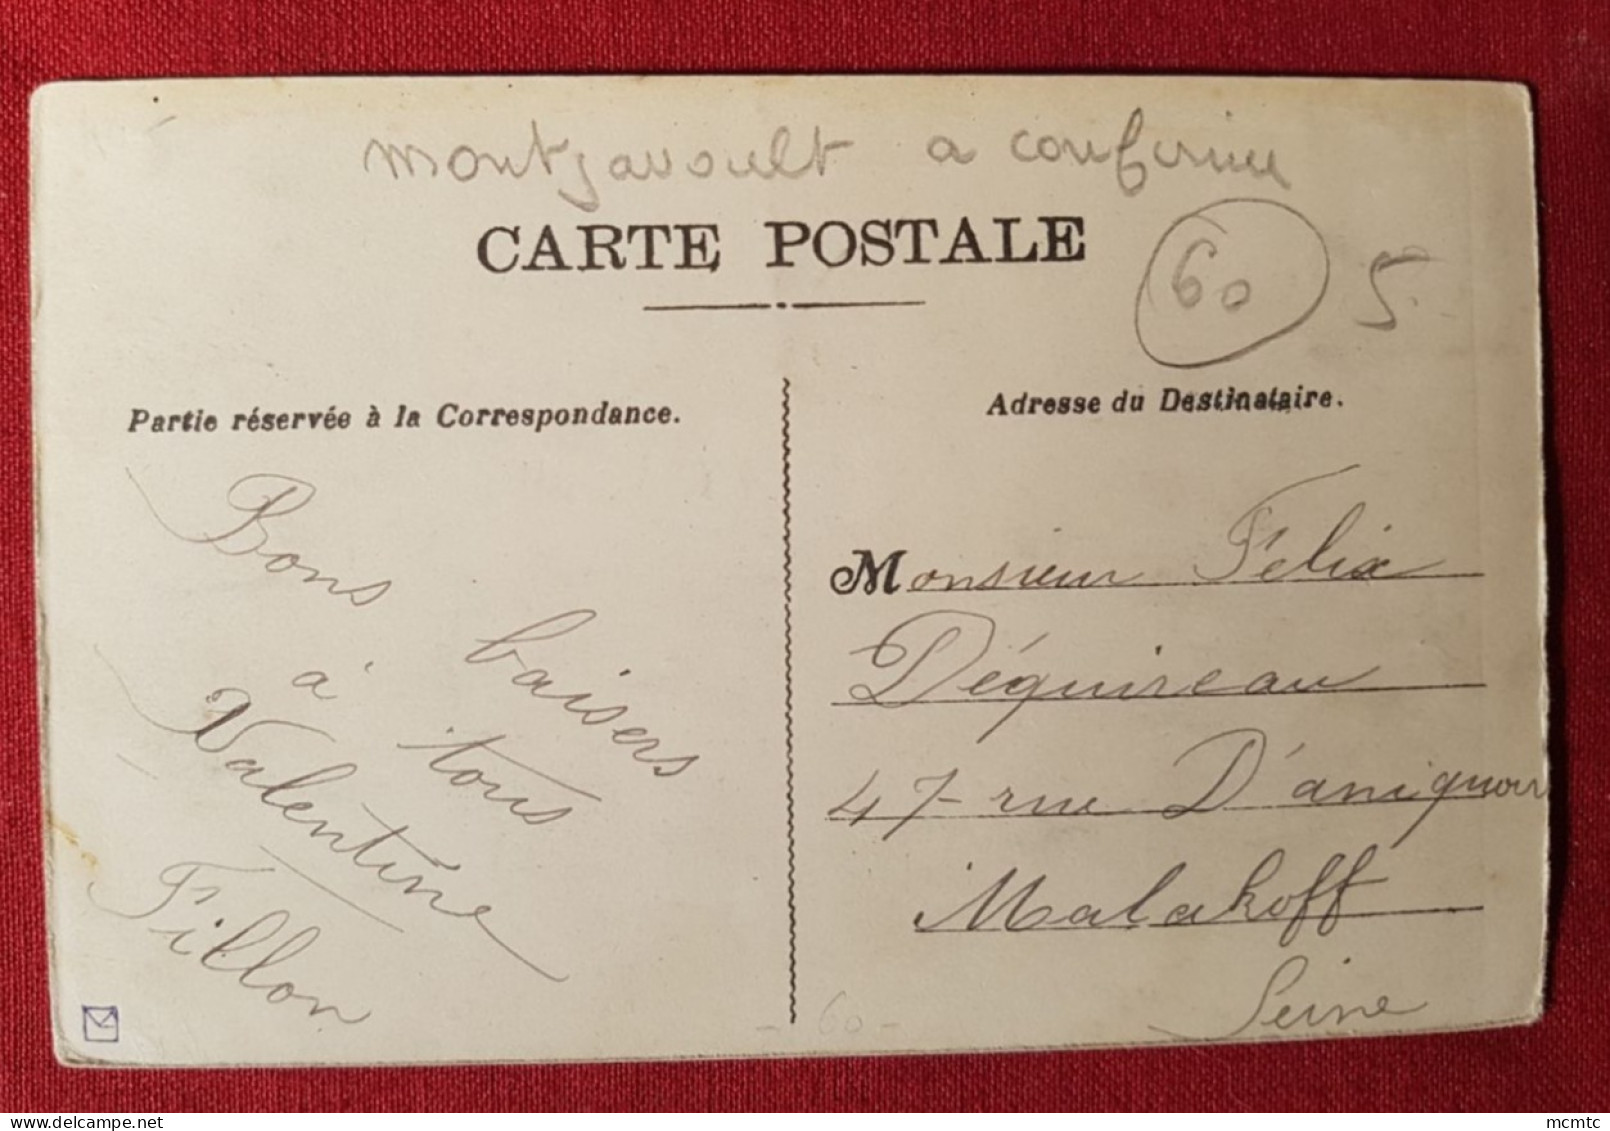 montjavoult a confirmer
CARTE POSTALE
60
5
Partie réservée à la Correspondance.
Adresse du Destinataire.
Bons baisers
à tous
Valentine
Fillon
Monsieur Felix
Déquireau
47 rue D'aniquoir
Malakoff
Seine
- 60 -
www.delcampe.net
mcmtc